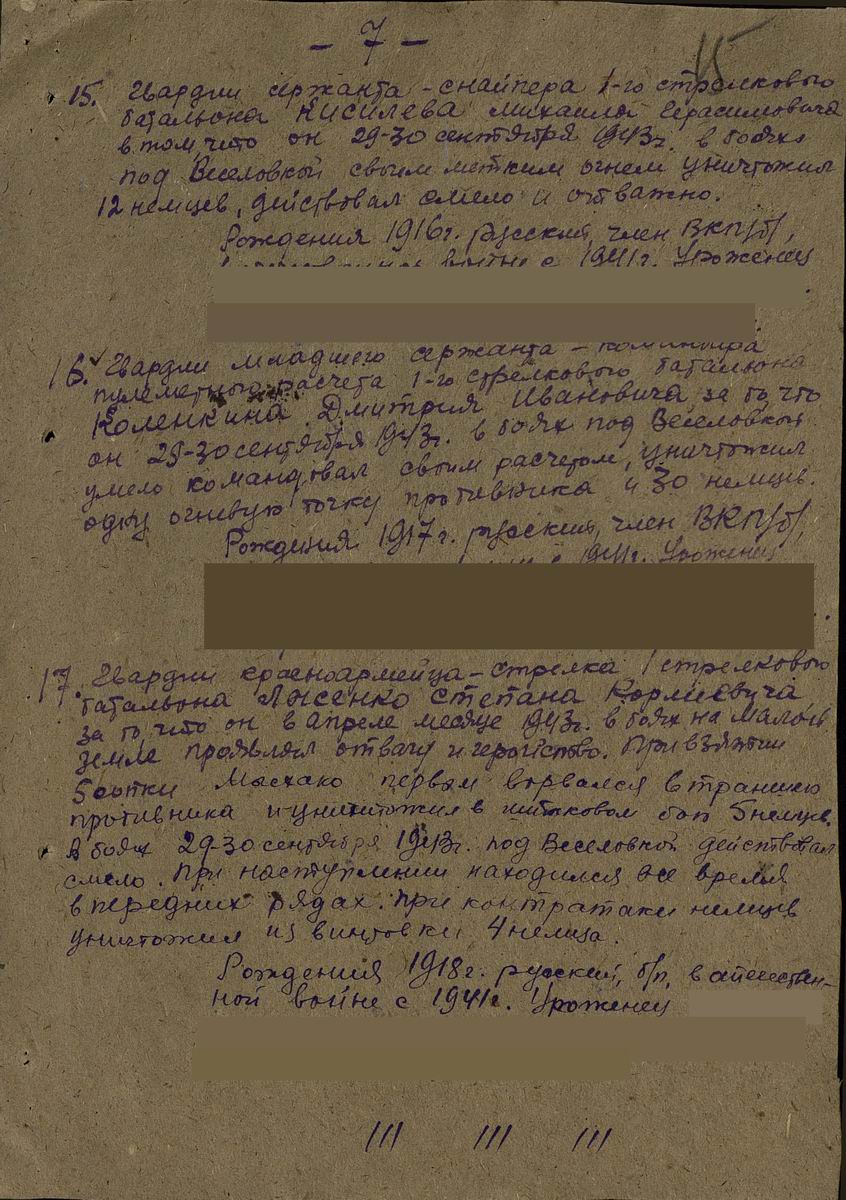 - 7 -
15. Гвардии сержанта - снайпера 1-го стрелкового
батальона Киселева Михаила Герасимовича
в том, что он 29-30 сентября 1943г. в боях
под Веселовкой своим метким огнем уничтожил
12 немцев, действовал смело и отважно.
Рождения 1916г. русский, член ВКП/б/,
войне с 1941г. Уроженец
16. Гвардии младшего сержанта - командира
пулеметного расчета 1-го стрелкового батальона
Коленкина Дмитрия Ивановича за то, что
он 29-30 сентября 1943г. в боях под Веселовкой
умело командовал своим расчетом, уничтожил
одну огневую точку противника и 30 немцев.
Рождения 1917г. русский, член ВКП/б/,
с 1941г. Уроженец
17. Гвардии красноармейца - стрелка 1 стрелкового
батальона Лысенко Степана
за то, что он в апреле месяце 1943г. в боях на Малой
земле проявлял отвагу и геройство. При взятии
Мысхако первым ворвался в траншею
противника и уничтожил в штыковом бою 5 немцев.
В боях 29-30 сентября 1943г. под Веселовкой действовал
смело. При наступлении находился все время
в передних рядах. При контратаки немцев
уничтожил из винтовки 4 немца.
Рождения 1918г. русский, б/п, в отечествен-
ной войне с 1941г. Уроженец
/// /// ///